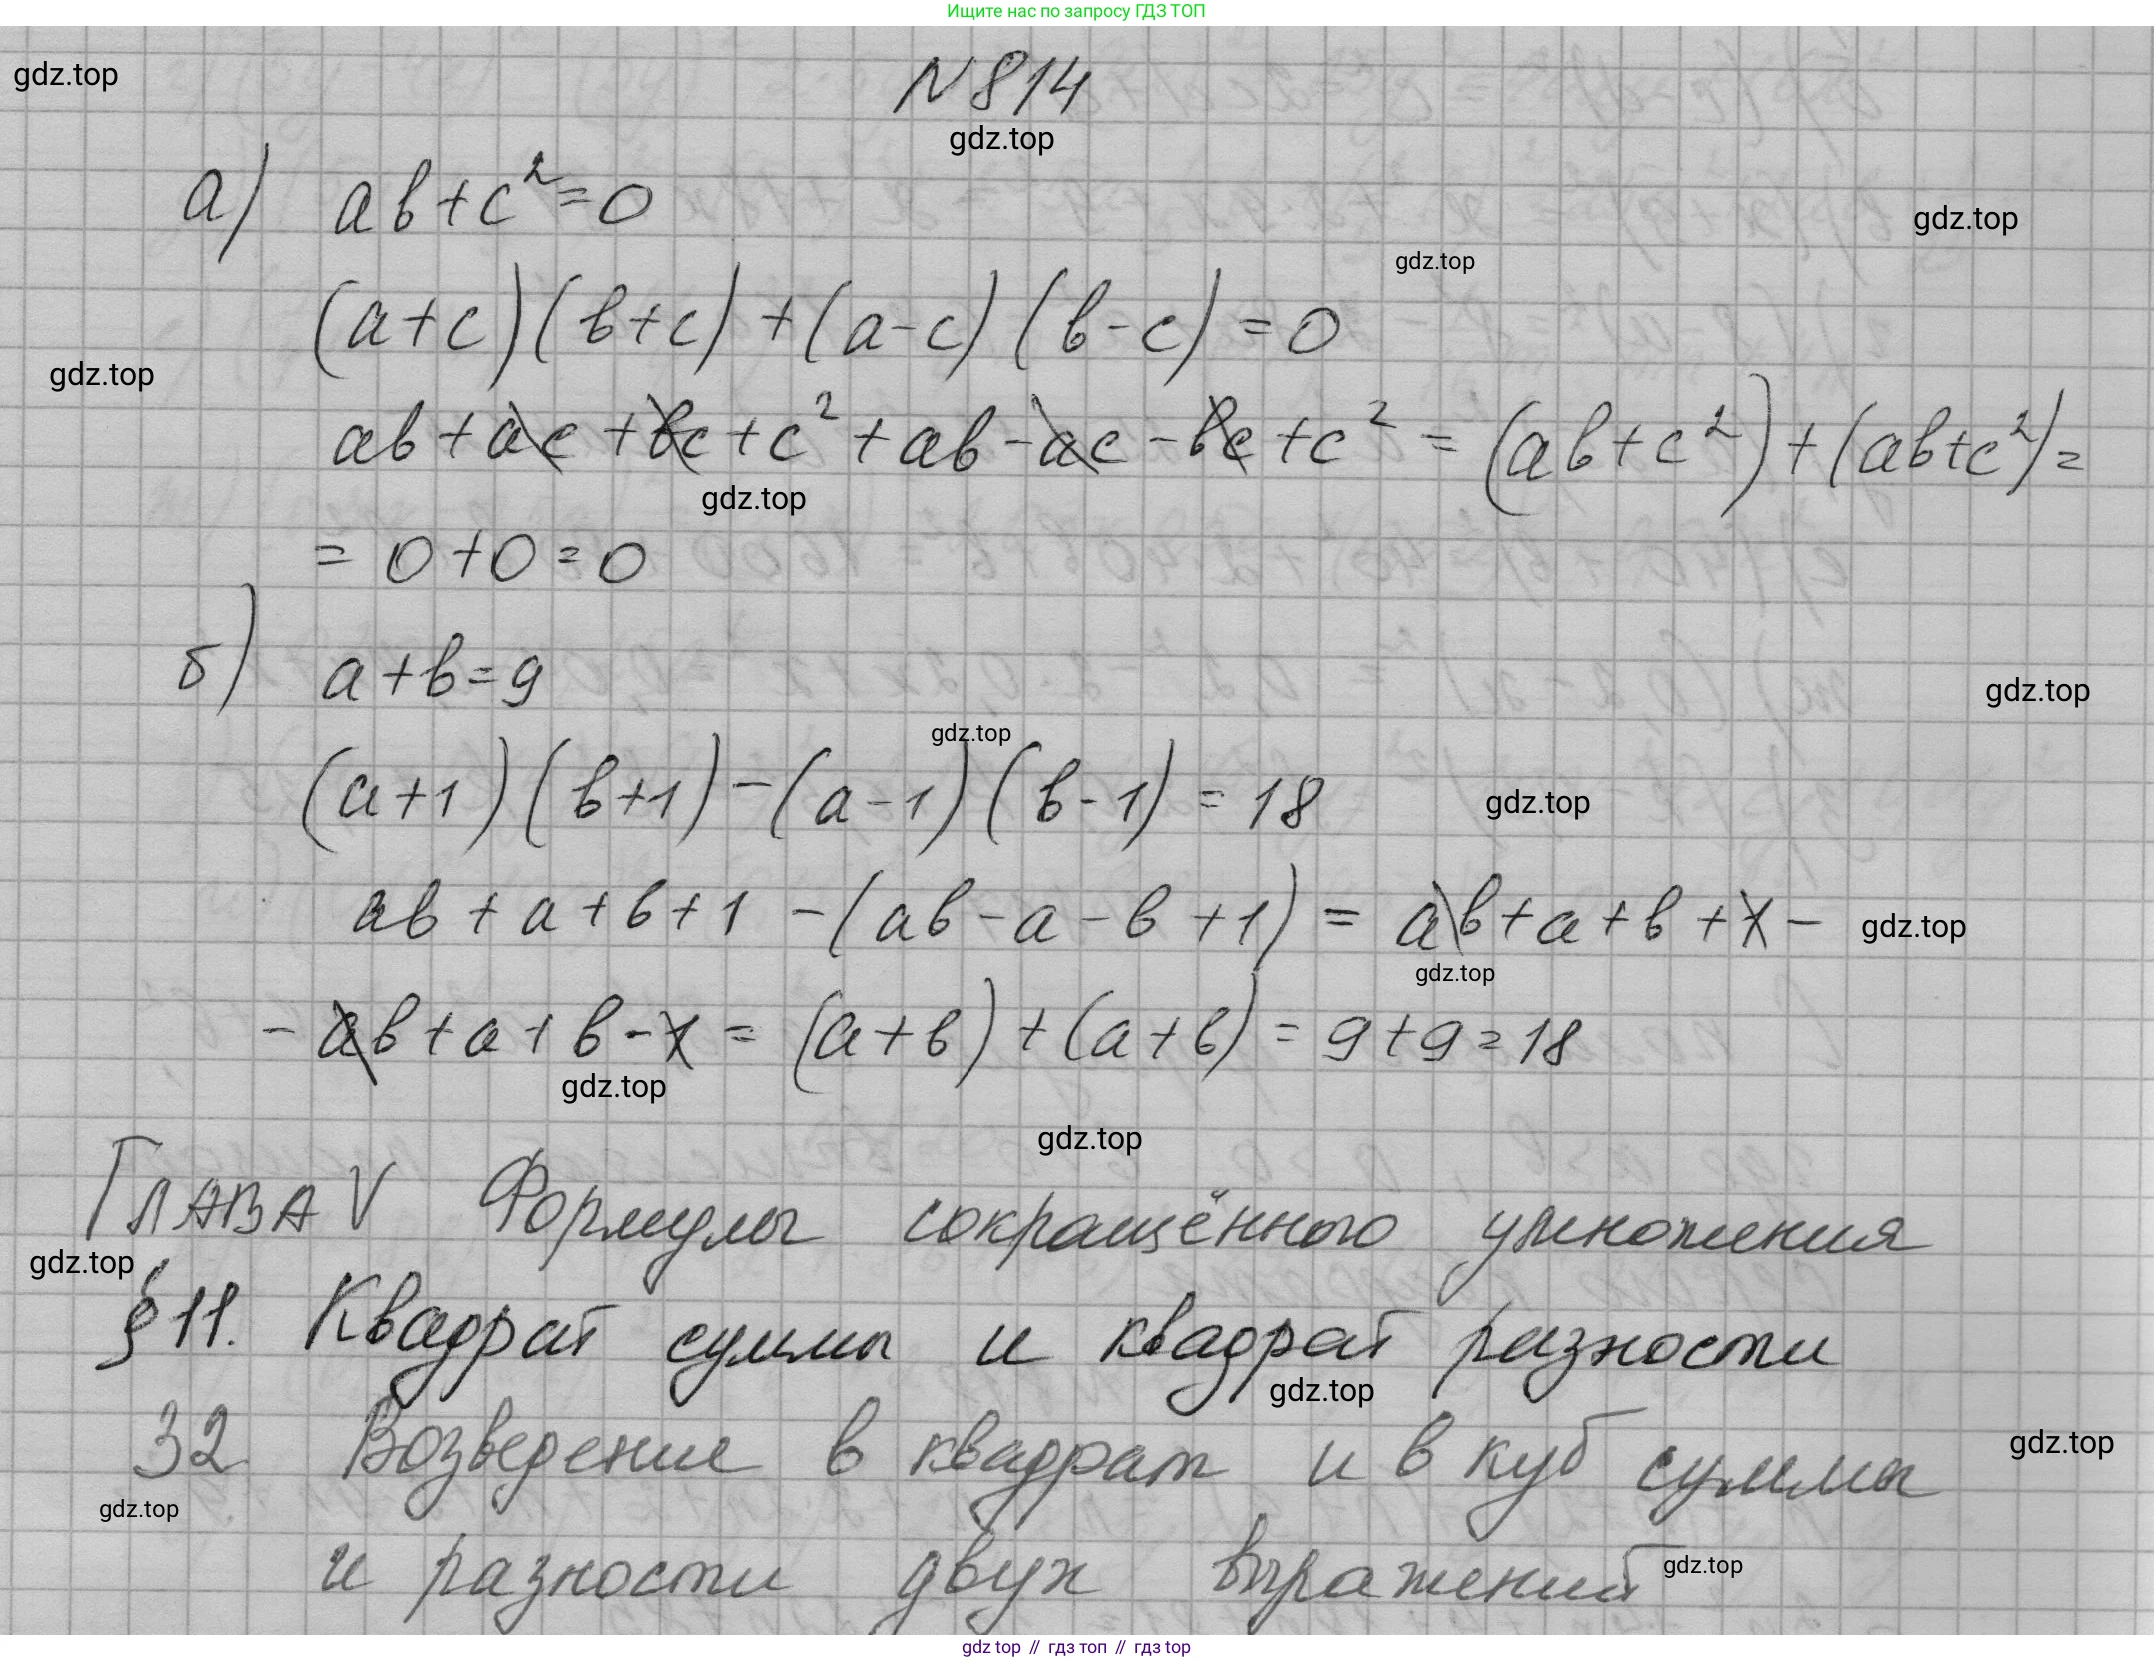 Ищите нас по запросу ГДЗ ТОП
N 814
gdz.top
gdz.top
а) ab+c²=0
gdz.top
gdz.top
(a+c)(b+c)+(a-c)(b-c)=0
gdz.top
ab+ac+bc+c²+ab-ac-bc+c²=(ab+c²)+(ab+c²)=
gdz.top
=0+0=0
б) a+b=9
gdz.top
gdz.top
(a+1)(b+1)-(a-1)(b-1)=18
gdz.top
ab+a+b+1-(ab-a-b+1)=ab+a+b+1-
gdz.top
gdz.top
-ab+a+b-1=(a+b)+(a+b)=9+9=18
gdz.top
gdz.top
Глава V Формулы сокращённого умножения
gdz.top
§11. Квадрат суммы и квадрат разности
gdz.top
32 Возведение в квадрат и в куб суммы
gdz.top
gdz.top
и разности двух выражений
gdz.top
gdz top // гдз топ // гдз top